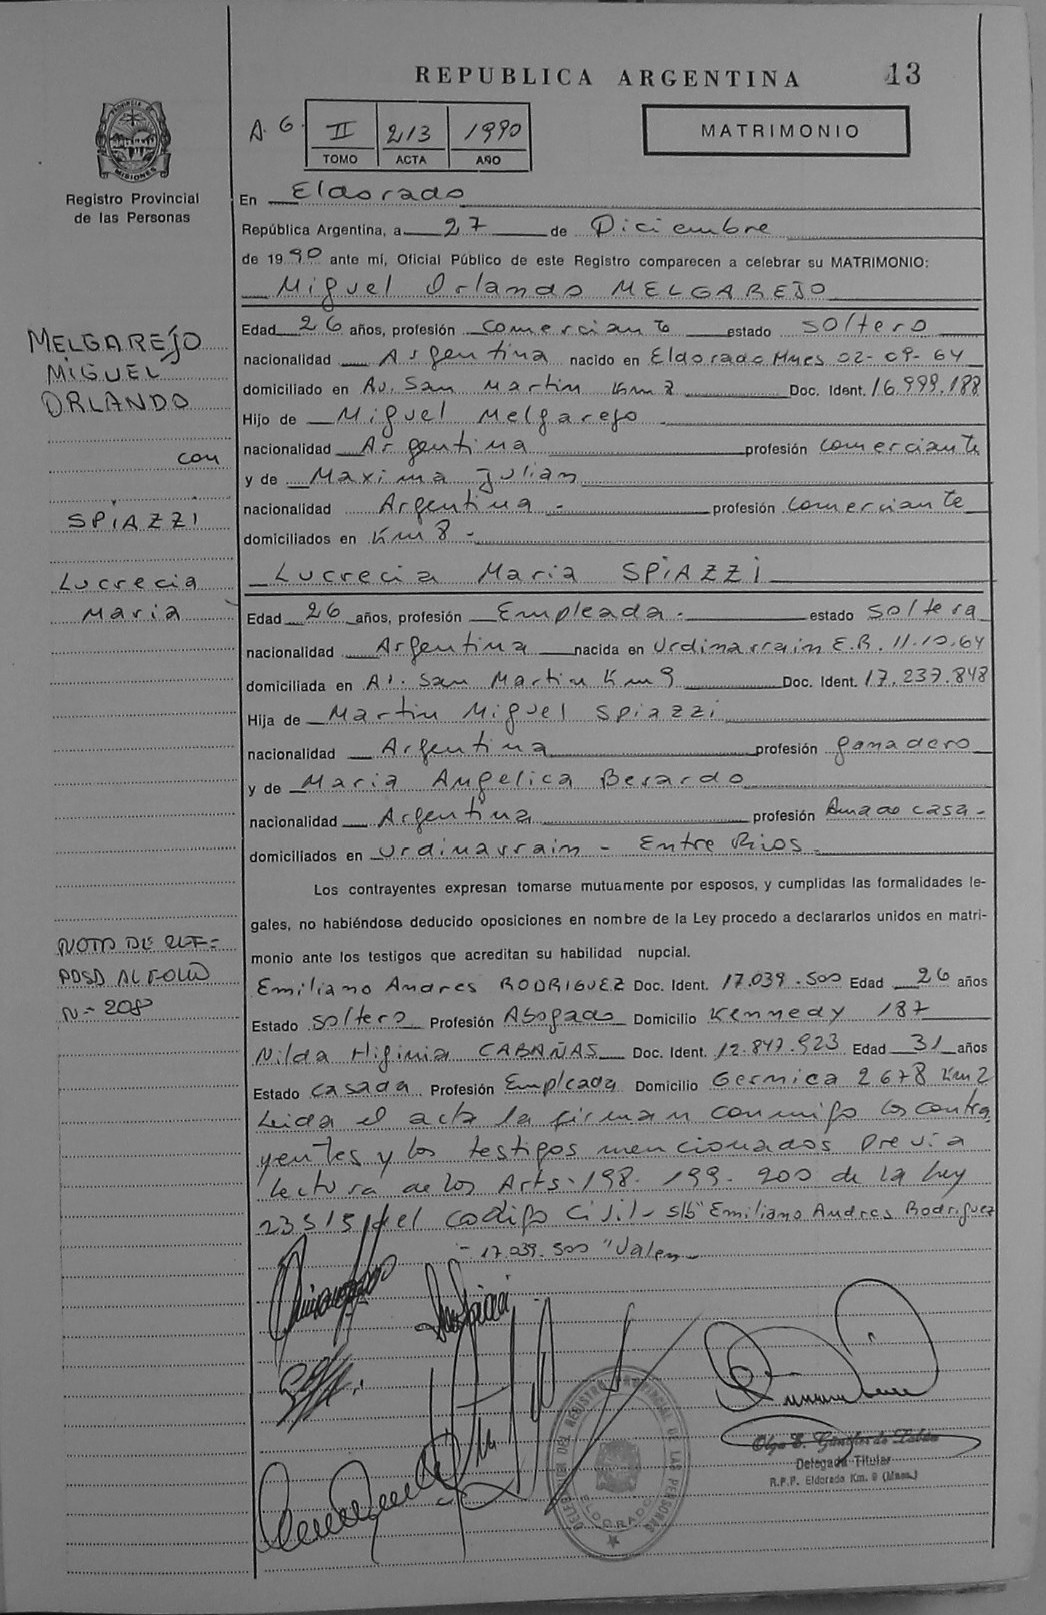 REPUBLICA ARGENTINA 13
A. G. II 213 1990
TOMO ACTA AÑO
MATRIMONIO
PROVINCIA DE MISIONES
Registro Provincial
de las Personas
En Eldorado
República Argentina, a 27 de Diciembre
de 1990 ante mi, Oficial Público de este Registro comparecen a celebrar su MATRIMONIO:
Miguel Orlando MELGAREJO
Edad 26 años, profesión comerciante estado soltero
nacionalidad Argentina nacido en Eldorado Mnes 02-09-64
domiciliado en Av. San Martin Km 8 Doc. Ident. 16.999.188
Hijo de Miguel Melgarejo
nacionalidad Argentina profesión comerciante
y de Maxima Julian
nacionalidad Argentina - profesión comerciante
domiciliados en Km 8 -
Lucrecia Maria SPIAZZI
Edad 26 años, profesión Empleada - estado soltera
nacionalidad Argentina nacida en Urdinarrain E.R. 11-10-64
domiciliada en Av. San Martin Km 9 Doc. Ident. 17.237.848
Hija de Martin Miguel Spiazzi
nacionalidad Argentina profesión ganadero
y de Maria Angelica Berardo
nacionalidad Argentina profesión Ama de casa -
domiciliados en Urdinarrain - Entre Rios -
Los contrayentes expresan tomarse mutuamente por esposos, y cumplidas las formalidades le-
gales, no habiéndose deducido oposiciones en nombre de la Ley procedo a declararlos unidos en matri-
monio ante los testigos que acreditan su habilidad nupcial.
Emiliano Andres RODRIGUEZ Doc. Ident. 17.039.500 Edad 26 años
Estado soltero Profesión Abogado Domicilio Kennedy 187
Nilda Higinia CABAÑAS Doc. Ident. 12.847.923 Edad 31 años
Estado casada Profesión Empleada Domicilio Gernica 2678 Km 2
Leida el acta la firman conmigo los contra
yentes y los testigos mencionados previa
lectura de los Arts. 198. 199. 200 de la Ley
23515 del codigo Civil - s/b "Emiliano Andres Rodriguez
- 17.039.500 "Valen
MELGAREJO
MIGUEL
ORLANDO
con
SPIAZZI
Lucrecia
Maria
NOTA DE REF=
PASA AL FOLIO
N- 208
DELEGACION DEL REGISTRO PROVINCIAL DE LAS PERSONAS
ELDORADO
Delegada Titular
R.P.P. Eldorado Km. 9 (Mnes.)